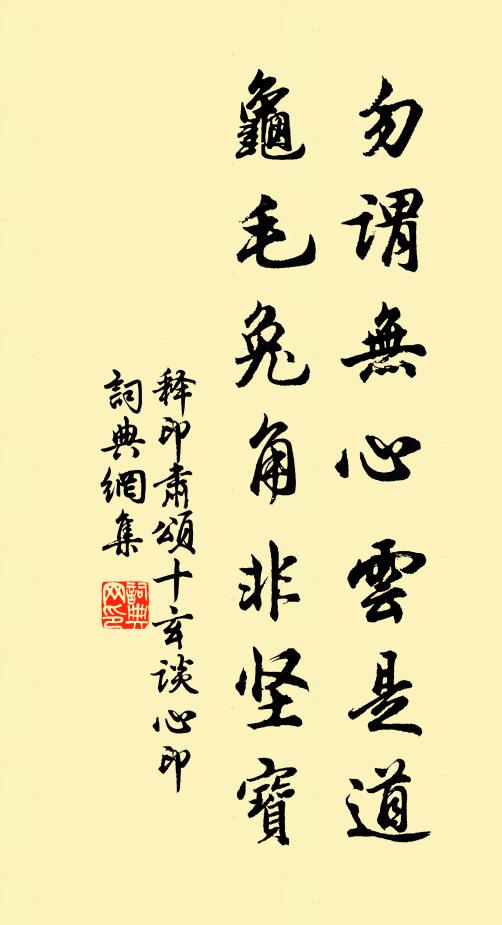 勿謂無心雲是道
龜毛兔角非坚寶
释印肃頌十玄谈心印
詞典網集
詞典网印